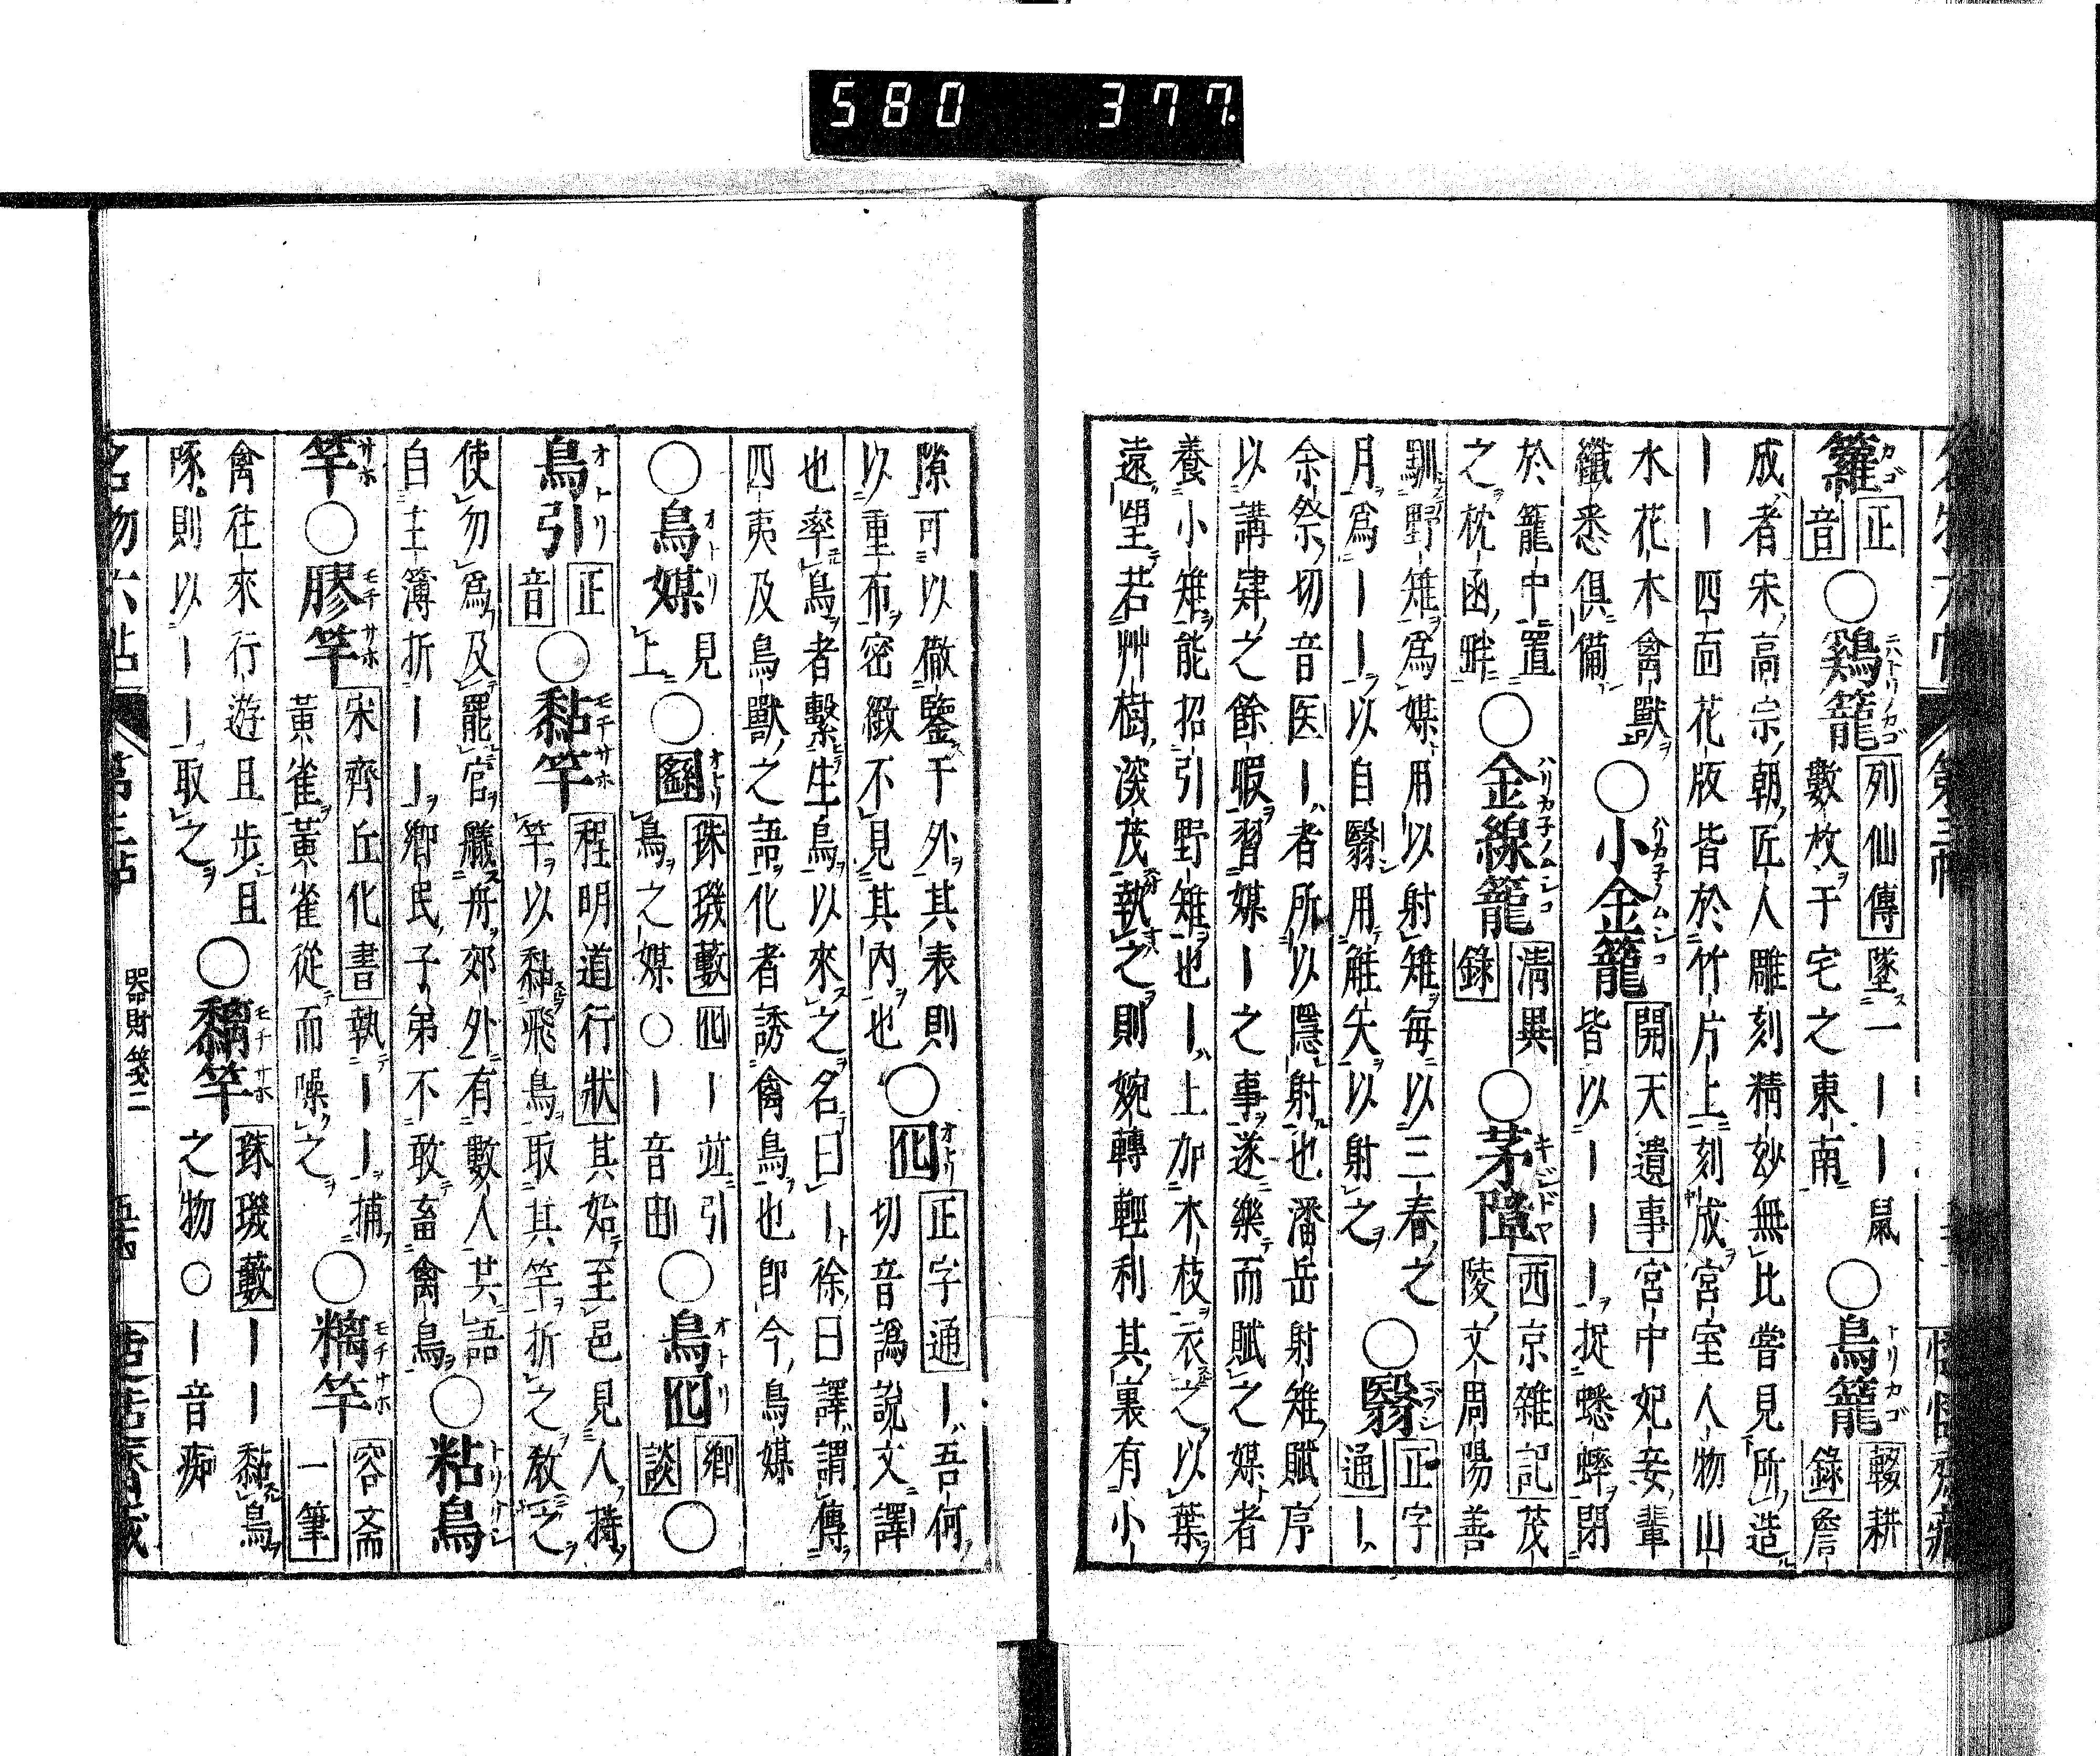 籮 カゴ 正
音 ○鷄籠 ニハトリノカゴ 列仙傳 墜一――鼠
數枚于宅之東南 ○鳥籠 トリカゴ 輟耕
錄 詹
成者宋高宗朝匠人雕刻精妙無比嘗見所造
――四面花版皆於竹片上刻成宮室人物山
水花木禽獸
纖悉俱備 ○小金籠 ハリカネノムシコ 開天遺事 宮中妃妾輩
皆以―――捉蟋蟀閉
於籠中置
之枕函畔 ○金線籠 ハリカネノムシコ 清異
錄 ○茅障 キジドヤ 西京雜記 茂
陵文周陽善
馴野雉爲媒用以射雉每以三春之
月爲――以自翳用觟矢以射之 ○翳 正字
通 ―
余祭切音医―者所以隱射也潘岳射雉賦序
以講肄之餘暇習媒―之事遂樂而賦之媒者
養小雉能招引野雉也―上加木枝衣之以葉
遠望若艸樹淡茂執之則婉轉輕利其裏有小
隙可以徹鑒于外其表則
以重布密緻不見其內也 ○囮 オトリ 正字通 ―吾何
切音譌說文譯
也率鳥者繫生鳥以來之名曰―徐曰譯謂傳
四夷及鳥獸之語化者誘禽鳥也即今鳥媒
○鳥媒 オトリ 見
上 ○圝 オトリ 珠璣藪 囮―並引
鳥之媒○―音由 ○鳥囮 オトリ 鄉
談 ○
鳥引 オトリ 正
音 ○黏竿 モチサホ 程明道行狀 其始至邑見人持
竿以黏飛鳥取其竿折之敎之
使勿爲及罷官艤舟郊外有數人共語
自主簿折――鄉民子弟不敢畜禽鳥 ○粘鳥
竿 サホ ○膠竿 モチサホ 宋齊丘化書 執――捕
黃雀黃雀從而噪之 ○竿 モチサホ 容斎
一筆
禽往來行游且步且
啄則以――取之 ○竿 モチサホ 珠璣藪 ――黏鳥
之物○―音痴
名物六帖 第三帖 器財箋二